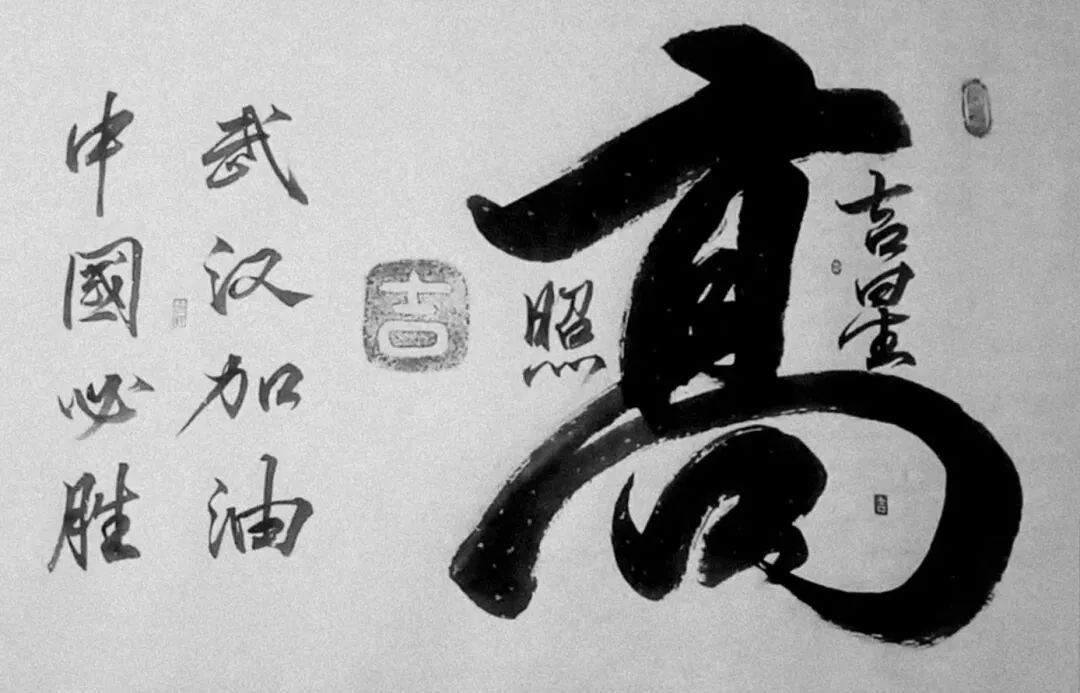 吉星
高
照
吉
武汉加油
中國必胜